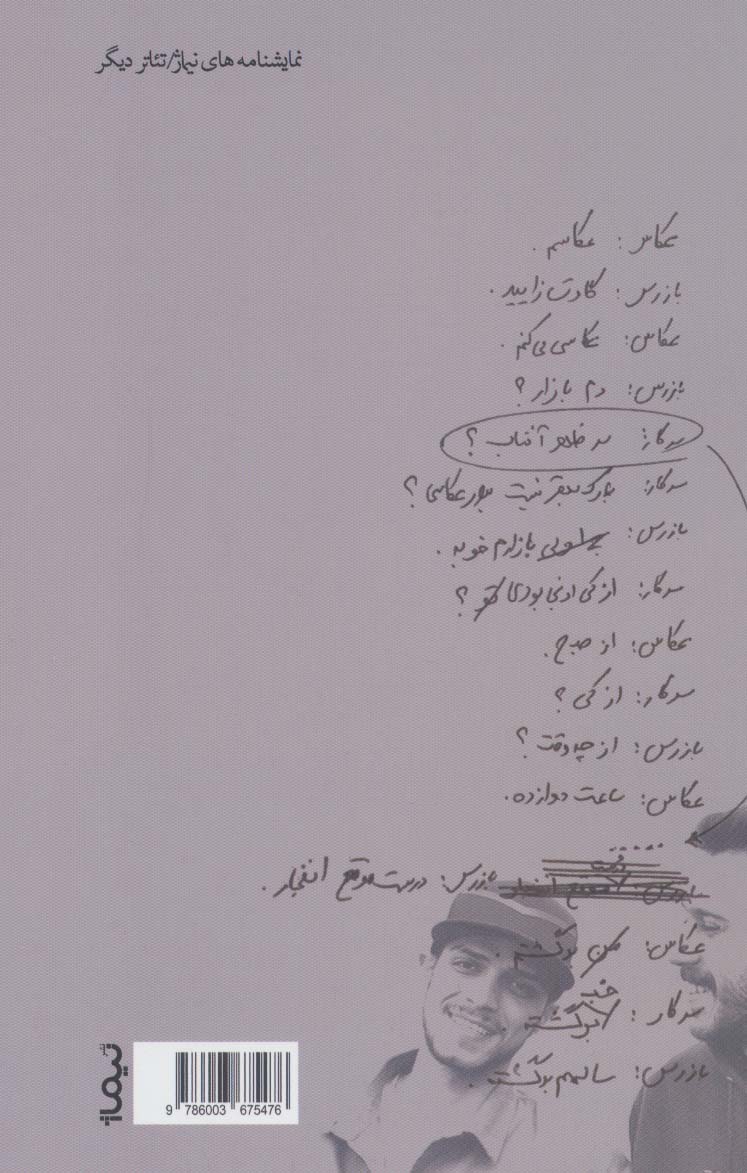 نمایشنامه های نیماژ/تئاتر دیگر
عکاس: عکاسم.
بازرس: گاوت زایید.
عکاس: عکاسی می‌کنم.
بازرس: دم بازار؟
سرکار: سر ظهر آفتاب؟
سرکار: نیست عکاسی؟
بازرس: بازارم خوبه.
سرکار: از کی اونجا بودی؟
عکاس: از صبح.
سرکار: از کی؟
بازرس: از چه وقت؟
عکاس: ساعت دوازده.
.....
بازرس: درست موقع انفجار.
عکاس: من برگشتم.
سرکار: خب برگشته.
بازرس: سالمم برگشته.
نشر نیماژ
9 786003 675476